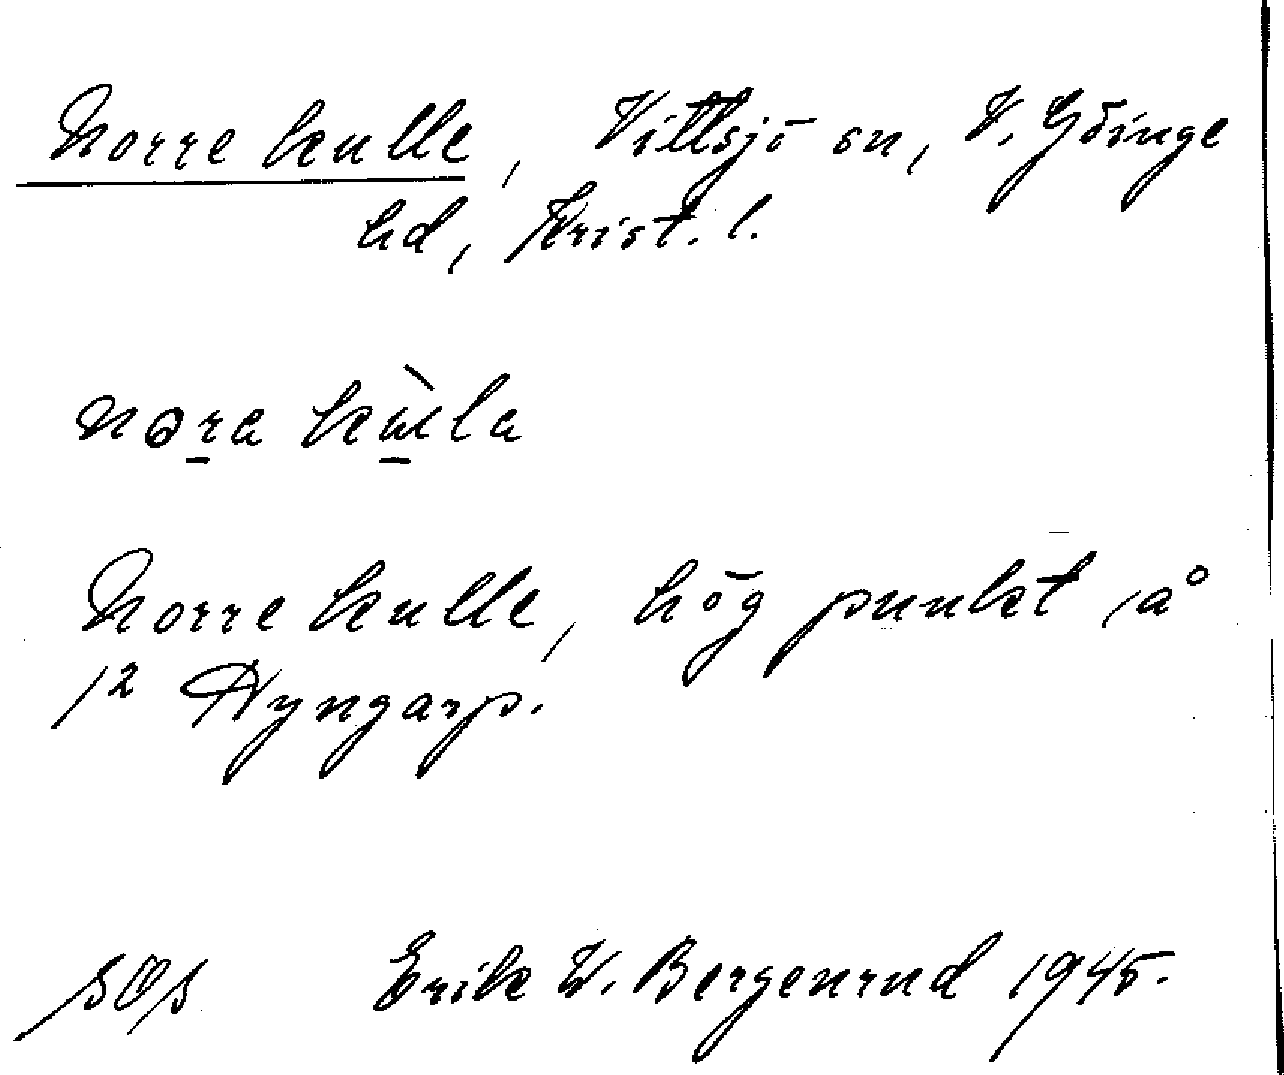 Norre kulle, Vittsjö sn, V. Göinge
hd, Krist. l.
nora kula
Norre kulle, hög punkt å
1² Nyngarp.
Erik W. Bergenrud 1945.